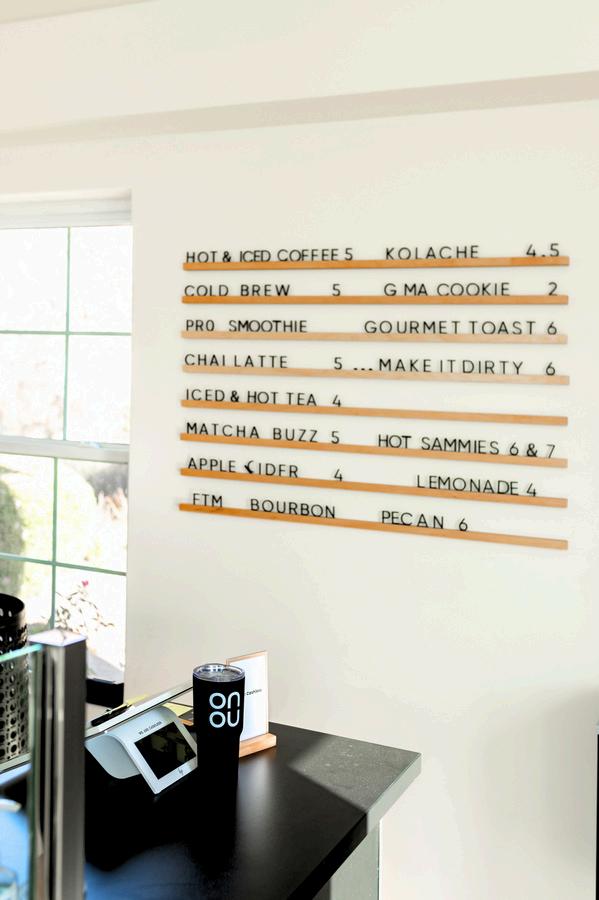 HOT & ICED COFFEE 5 KOLACHE 4.5
COLD BREW 5 G MA COOKIE 2
PRO SMOOTHIE GOURMET TOAST 6
CHAI LATTE 5 ... MAKE IT DIRTY 6
ICED & HOT TEA 4
MATCHA BUZZ 5 HOT SAMMIES 6 & 7
APPLE CIDER 4 LEMONADE 4
FTM BOURBON PECAN 6
on
ou